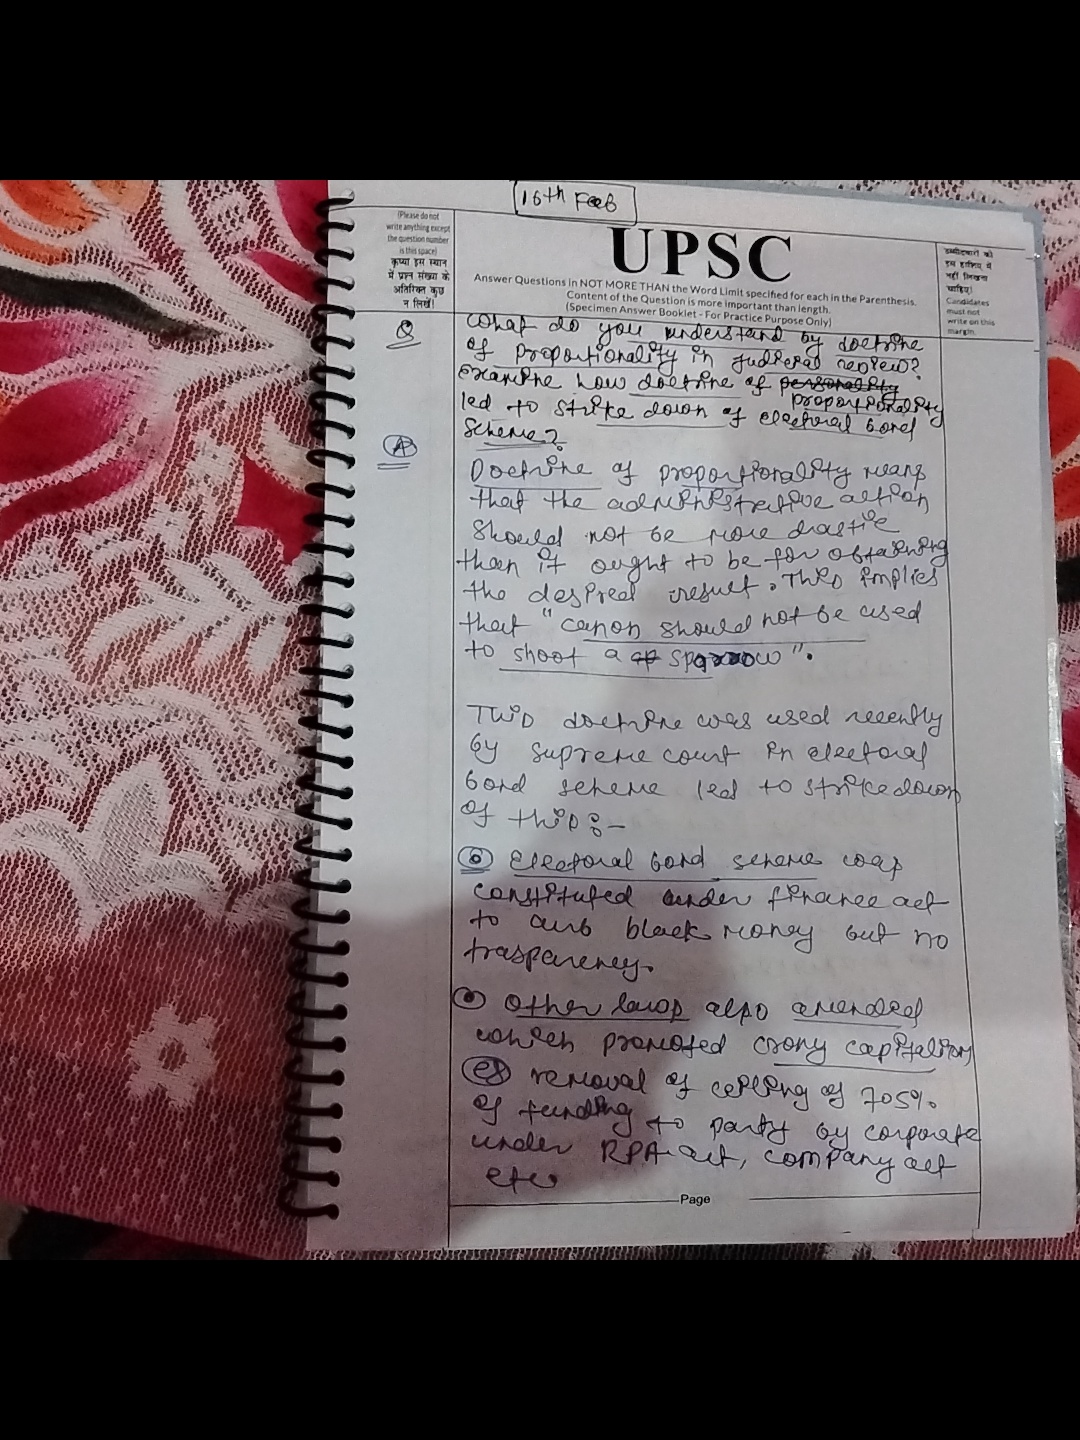 16th Feb
(Please do not
write anything except
the question number
is this space)
कृप्या इस स्थान
में प्रश्न संख्या के
अतिरिक्त कुछ
न लिखें।
UPSC
Answer Questions in NOT MORE THAN the Word Limit specified for each in the Parenthesis.
Content of the Question is more important than length.
(Specimen Answer Booklet - For Practice Purpose Only)
उम्मीदवारों को
इस हाशिए में
नहीं लिखना
चाहिए।
Candidates
must not
write on this
margin.
Q
What do you understand by doctrine
of proportionality in judicial review?
examine how doctrine of personality
proportionality
led to strike down of electoral bond
scheme?
A
Doctrine of proportionality means
that the administrative action
should not be more drastic
than it ought to be for obtaining
the desired result. This implies
that "canon should not be used
to shoot a sparrow".
This doctrine was used recently
by supreme court in electoral
bond scheme led to strikedown
of this :-
Electoral bond scheme was
constituted under finance act
to curb black money but no
trasparency.
other laws also amended
which promoted crony capitalism
eg removal of ceiling of 7.5%
of funding to party by corporate
under RPA act, company act
etc
Page